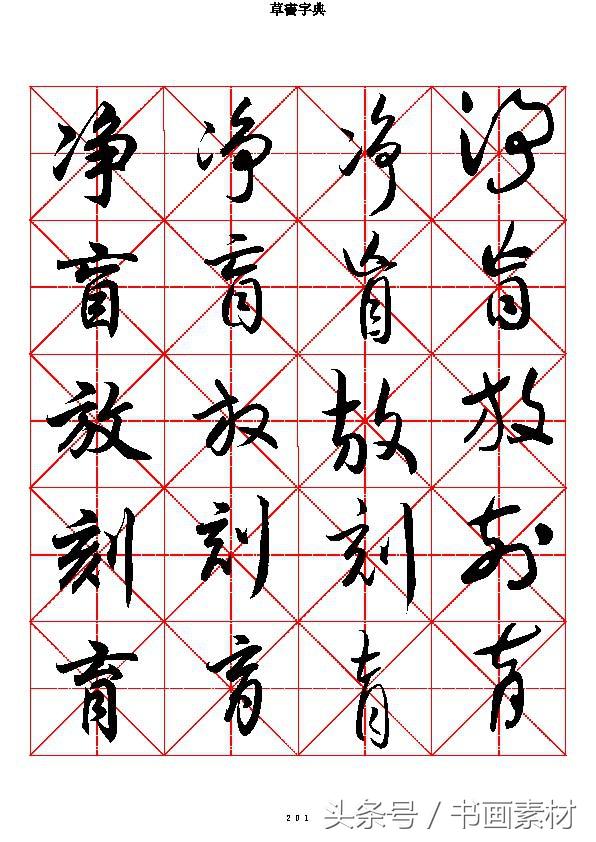 草書字典
净净净净
盲盲盲盲
放放放放
刻刻刻刻
育育育育
201
头条号 / 书画素材